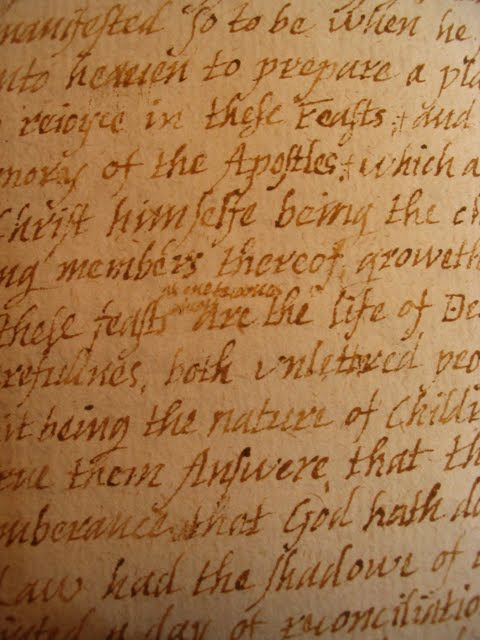 manifested so to be when he
into heauen to prepare a pla
reioyce in these Feasts, and
mory of the Apostles, which a
Christ himselfe being the c
ng members thereof, groweth
these feasts are the life of De
refulnes, both vnlettred peo
it being the nature of Child
rue them Answere, that th
mberance that God hath do
Law had the shadowe of
a day of reconciliatio